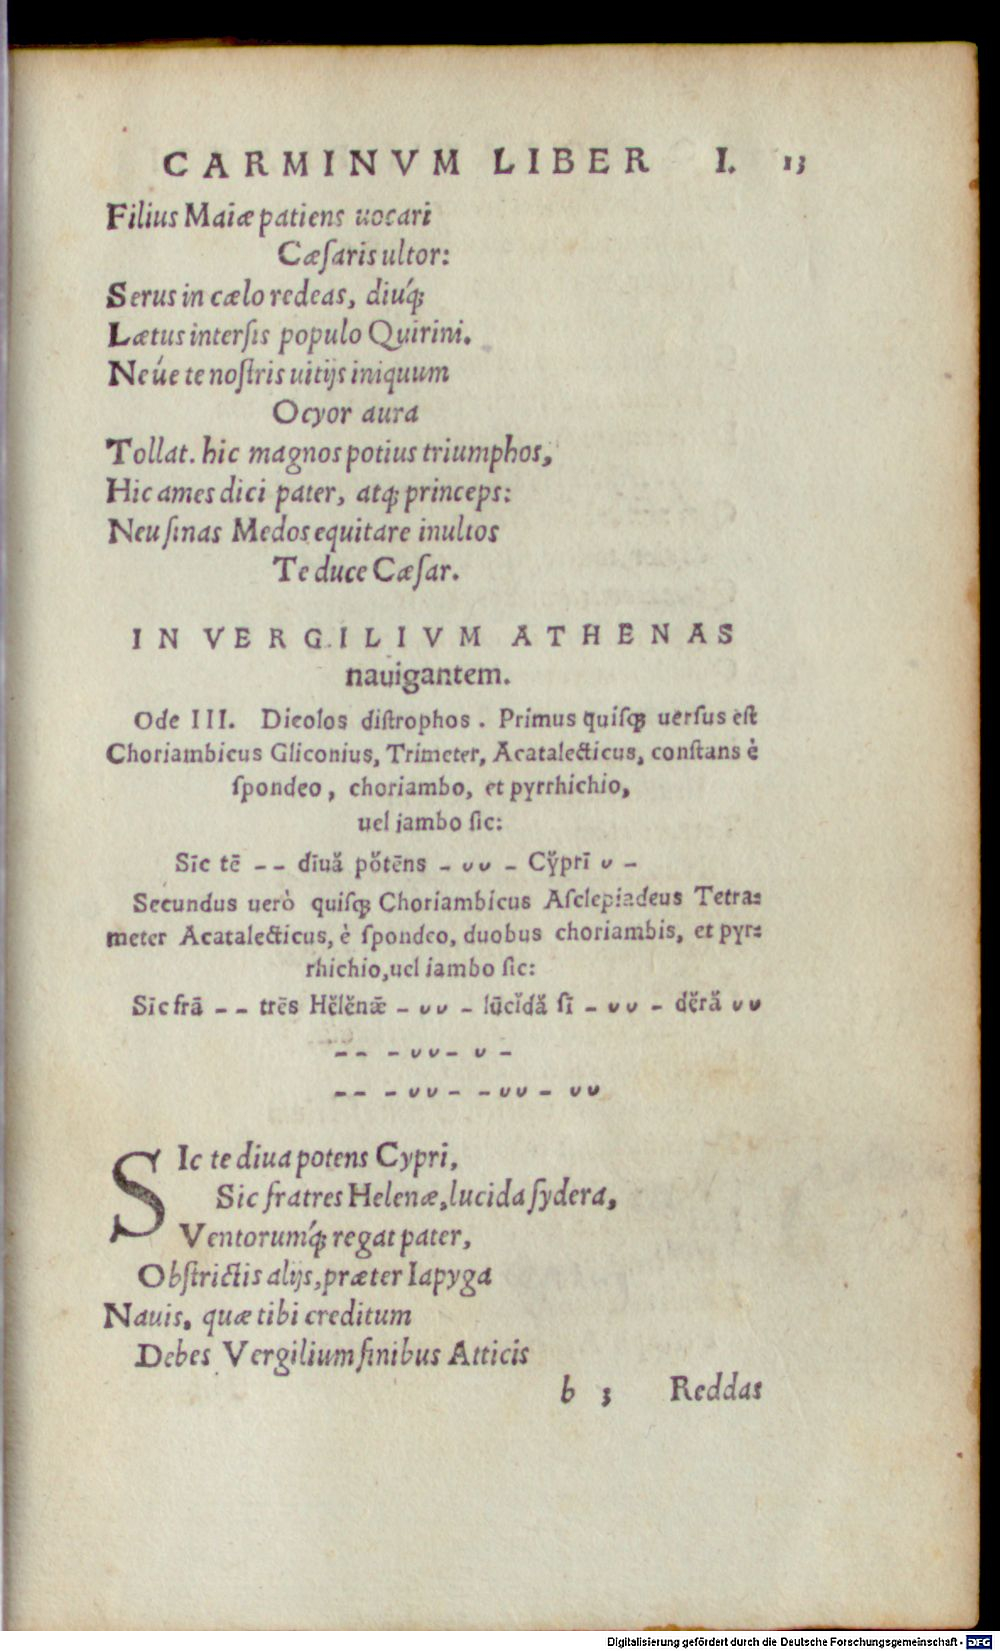 CARMINVM LIBER I. 13
Filius Maiæ patiens uocari
Cæſaris ultor:
Serus in cælo redeas, diuq́ꝫ
Lætus interſis populo Quirini.
Neúe te noſtris uitijs iniquum
Ocyor aura
Tollat. hic magnos potius triumphos,
Hic ames dici pater, atqꝫ princeps:
Neu ſinas Medos equitare inultos
Te duce Cæſar.
IN VERGILIVM ATHENAS
nauigantem.
Ode III. Dicolos diſtrophos. Primus quiſqꝫ uerſus eſt
Choriambicus Gliconius, Trimeter, Acatalecticus, conſtans è
ſpondeo, choriambo, et pyrrhichio,
uel iambo ſic:
Sīc tē – – dīuă pŏtēns – ᴗ ᴗ – Cy̆prī ᴗ –
Secundus uerò quiſqꝫ Choriambicus Aſclepiadeus Tetra⸗
meter Acatalecticus, è ſpondeo, duobus choriambis, et pyr⸗
rhichio, uel iambo ſic:
Sīc frā – – trēs Hĕlĕnǣ – ᴗ ᴗ – lūcĭdă ſī – ᴗ ᴗ – dĕră ᴗ ᴗ
– – – ᴗ ᴗ – ᴗ –
– – – ᴗ ᴗ – – ᴗ ᴗ – ᴗ ᴗ
SIc te diua potens Cypri,
Sic fratres Helenæ, lucida ſydera,
Ventorumq́ꝫ regat pater,
Obſtrictis alijs, præter Iapyga
Nauis, quæ tibi creditum
Debes Vergilium finibus Atticis
b 3 Reddas
Digitalisierung gefördert durch die Deutsche Forschungsgemeinschaft - DFG